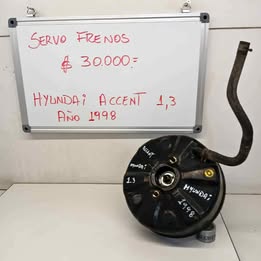 SERVO FRENOS
$ 30.000.=
HYUNDAi ACCENT 1,3
AÑO 1998
ACCENT
HYUNDAI
1.3
HYUNDAi
1998